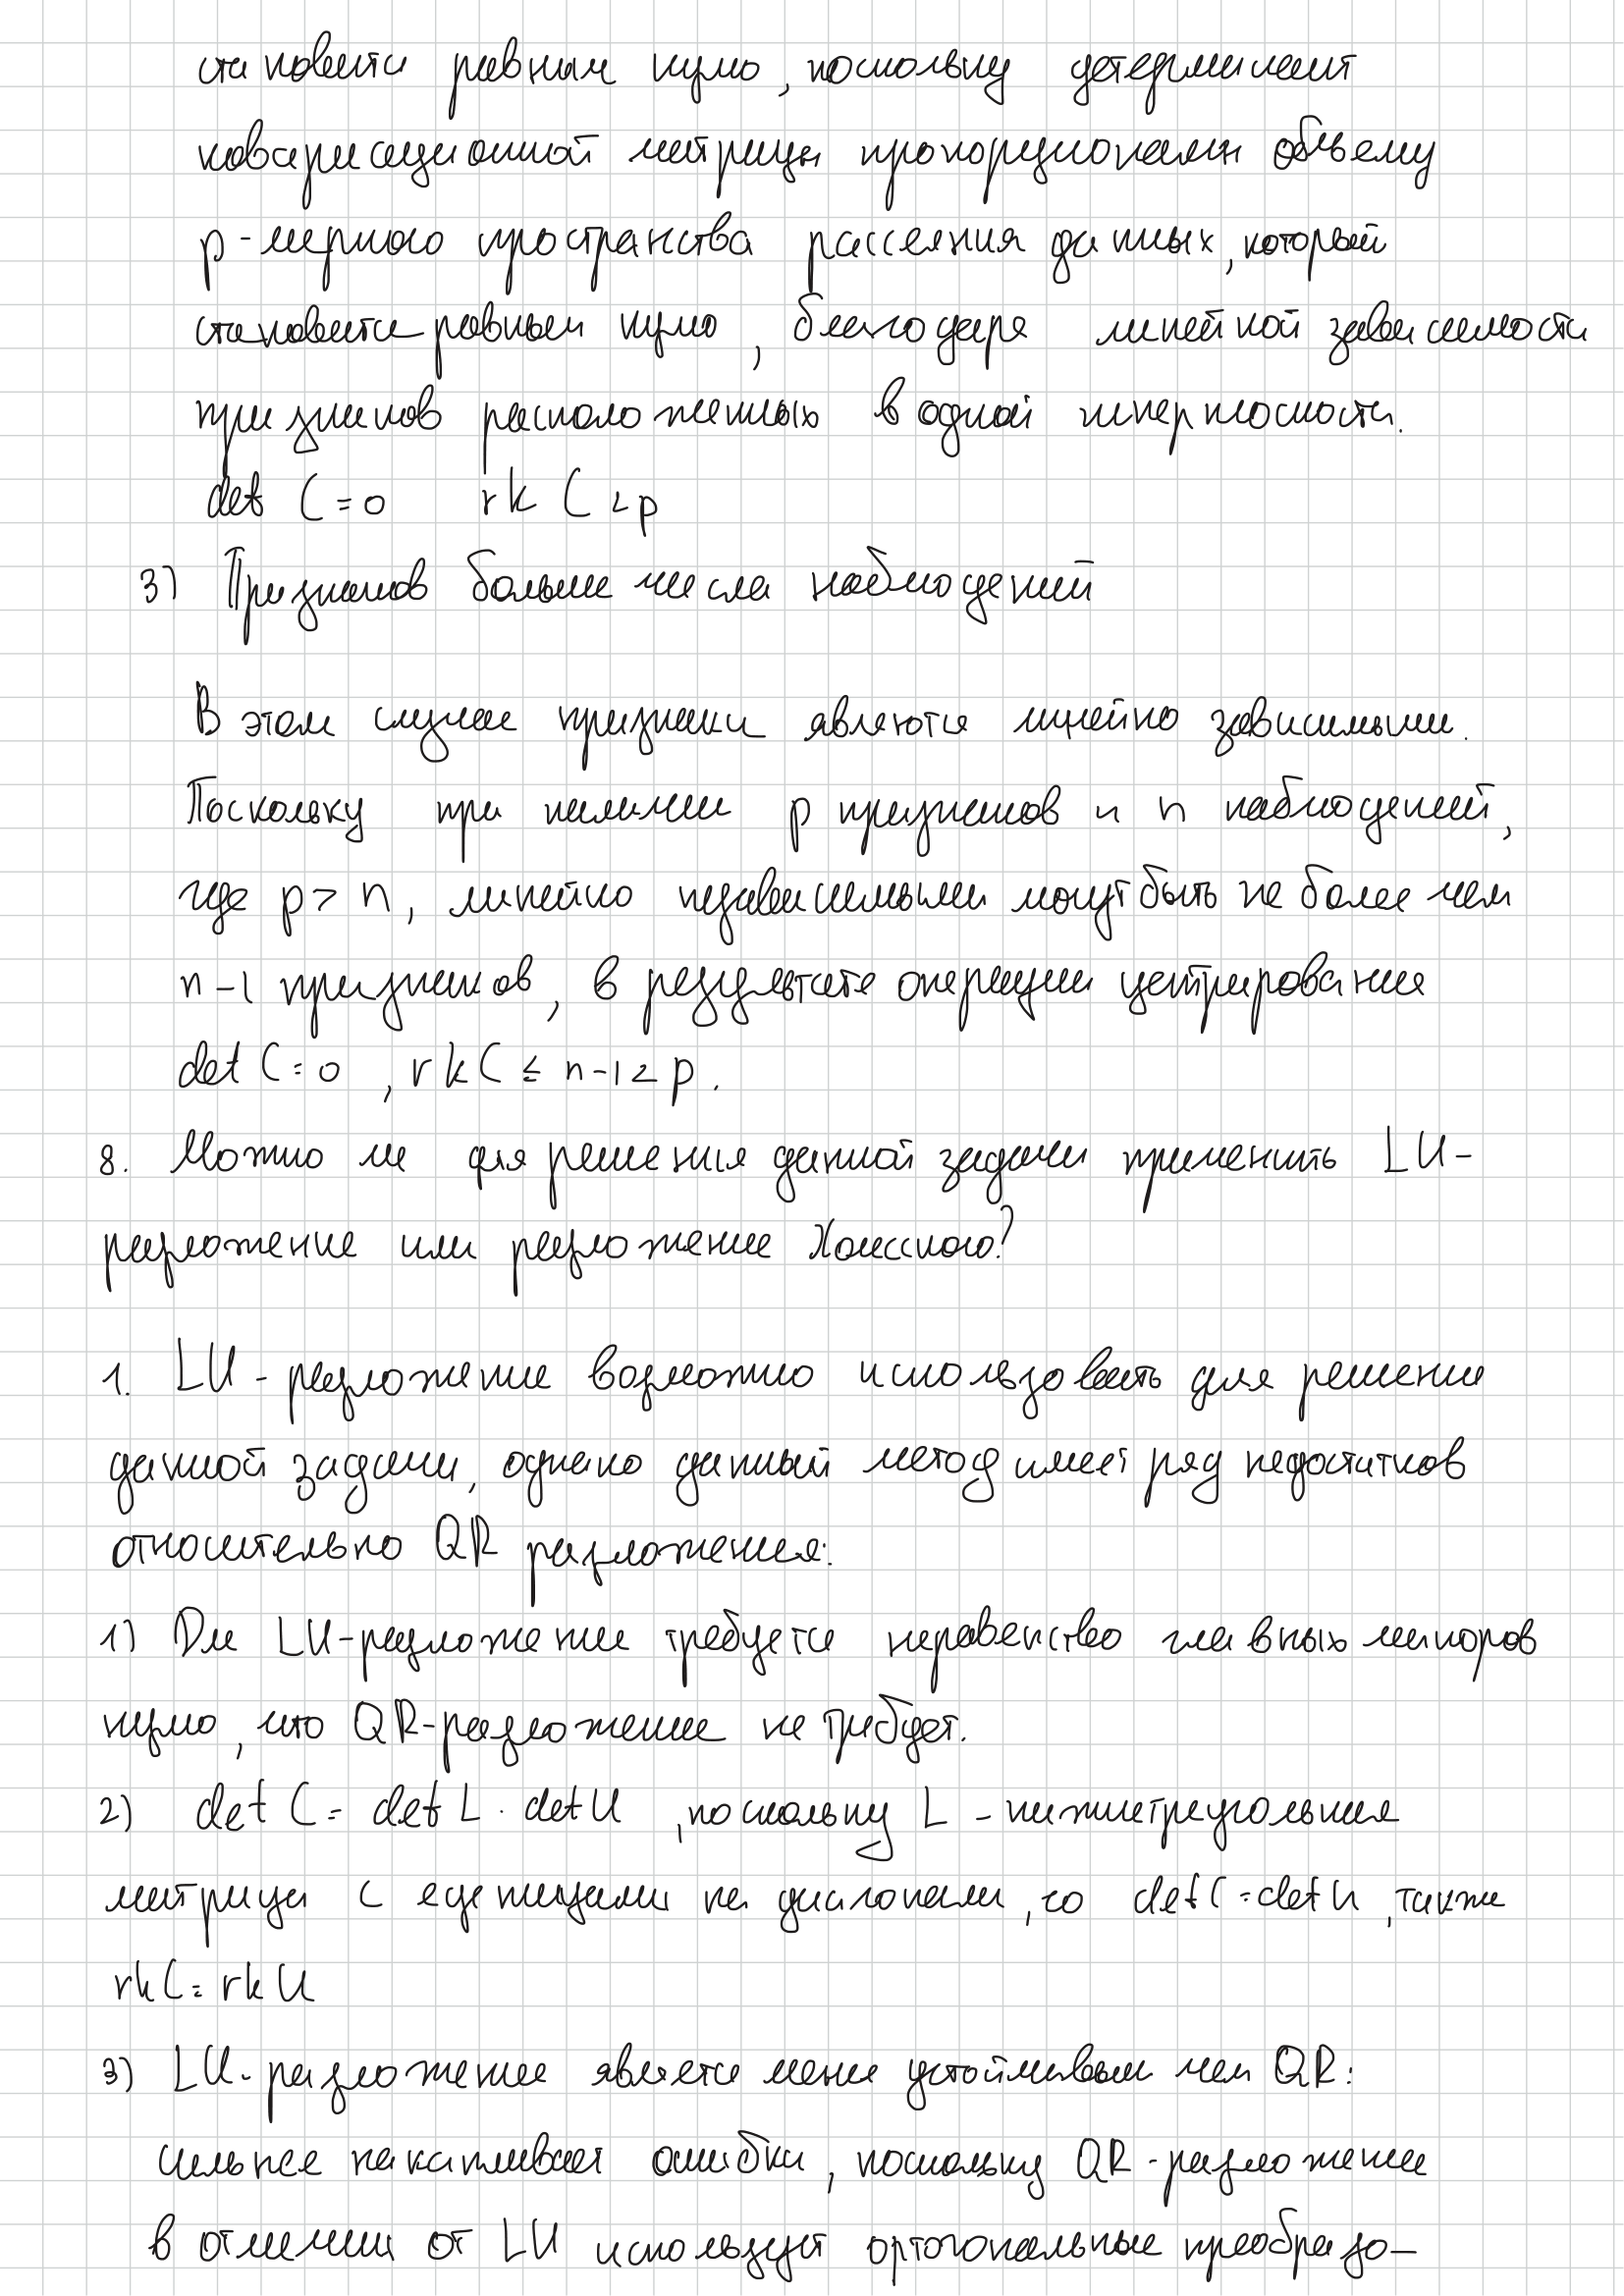 становится равным нулю, поскольку детерминант
ковариационной матрицы пропорционален объему
p-мерного пространства рассеяния данных, который
становится равным нулю, благодаря линейной зависимости
признаков расположенных в одной гиперплоскости.
det C = 0 rk C < p
3) Признаков больше числа наблюдений
В этом случае признаки являются линейно зависимыми.
Поскольку при наличии p признаков и n наблюдений,
где p > n, линейно независимыми могут быть не более чем
n-1 признаков, в результате операции центрирования
det C = 0, rk C ≤ n-1 < p.
8. Можно ли для решения данной задачи применить LU-
разложение или разложение Холесского?
1. LU-разложение возможно использовать для решения
данной задачи, однако данный метод имеет ряд недостатков
относительно QR разложения:
1) Для LU-разложение требуется неравенство главных миноров
нулю, что QR-разложение не требует.
2) det C = det L · det U, поскольку L - нижнетреугольная
матрица с единицами на диагонали, то det C = det U, также
rk C = rk U
3) LU-разложение является менее устойчивым чем QR:
сильнее накапливает ошибки, поскольку QR-разложение
в отличии от LU использует ортогональные преобразо-